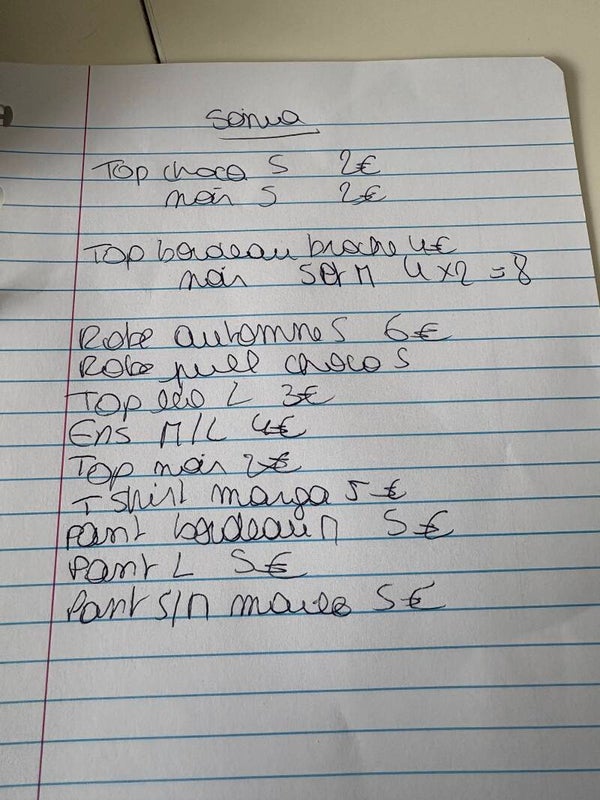 Sonia
Top choco S 2€
noir S 2€
Top bordeau broche 4€
noir S et M 4x2 = 8
Robe automne S 6€
Robe pull choco S
Top léo L 3€
Ens M/L 4€
Top noir 2€
T shirt manga 5€
Pant bordeau M 5€
Pant L 5€
Pant S/M 5€